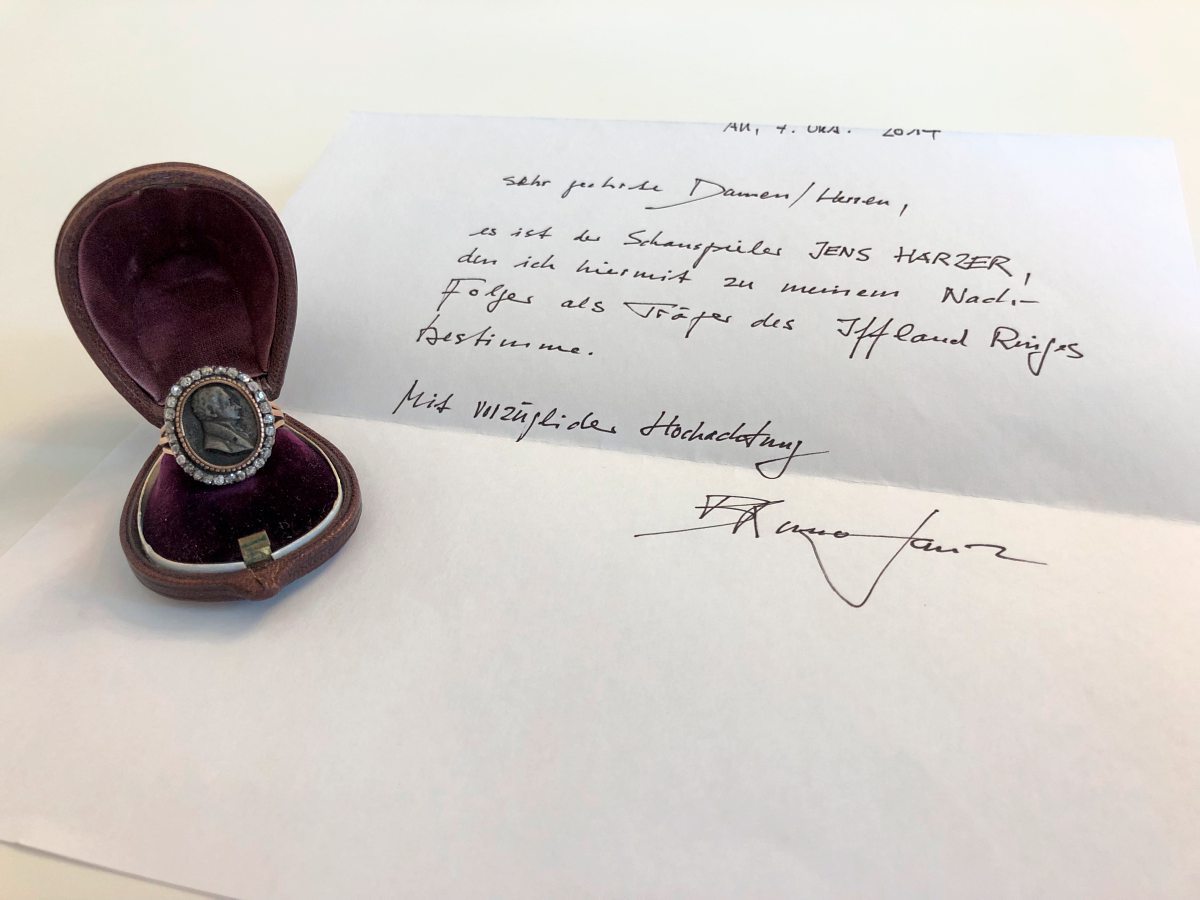 7. Okt. 2014
sehr geehrte Damen/Herren,
es ist der Schauspieler JENS HARZER,
den ich hiermit zu meinem Nach-
Folger als Träger des Iffland Ringes
bestimme.
Mit vorzüglicher Hochachtung
Bruno Ganz